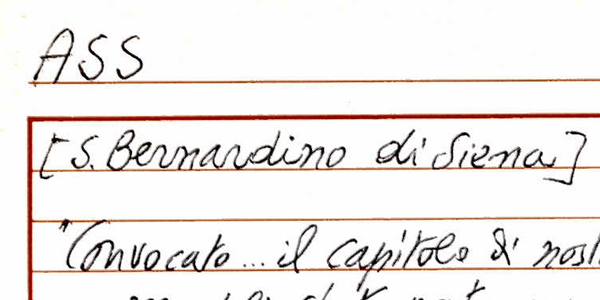 ASS
[S. Bernardino di Siena]
"Convocato... il capitolo di